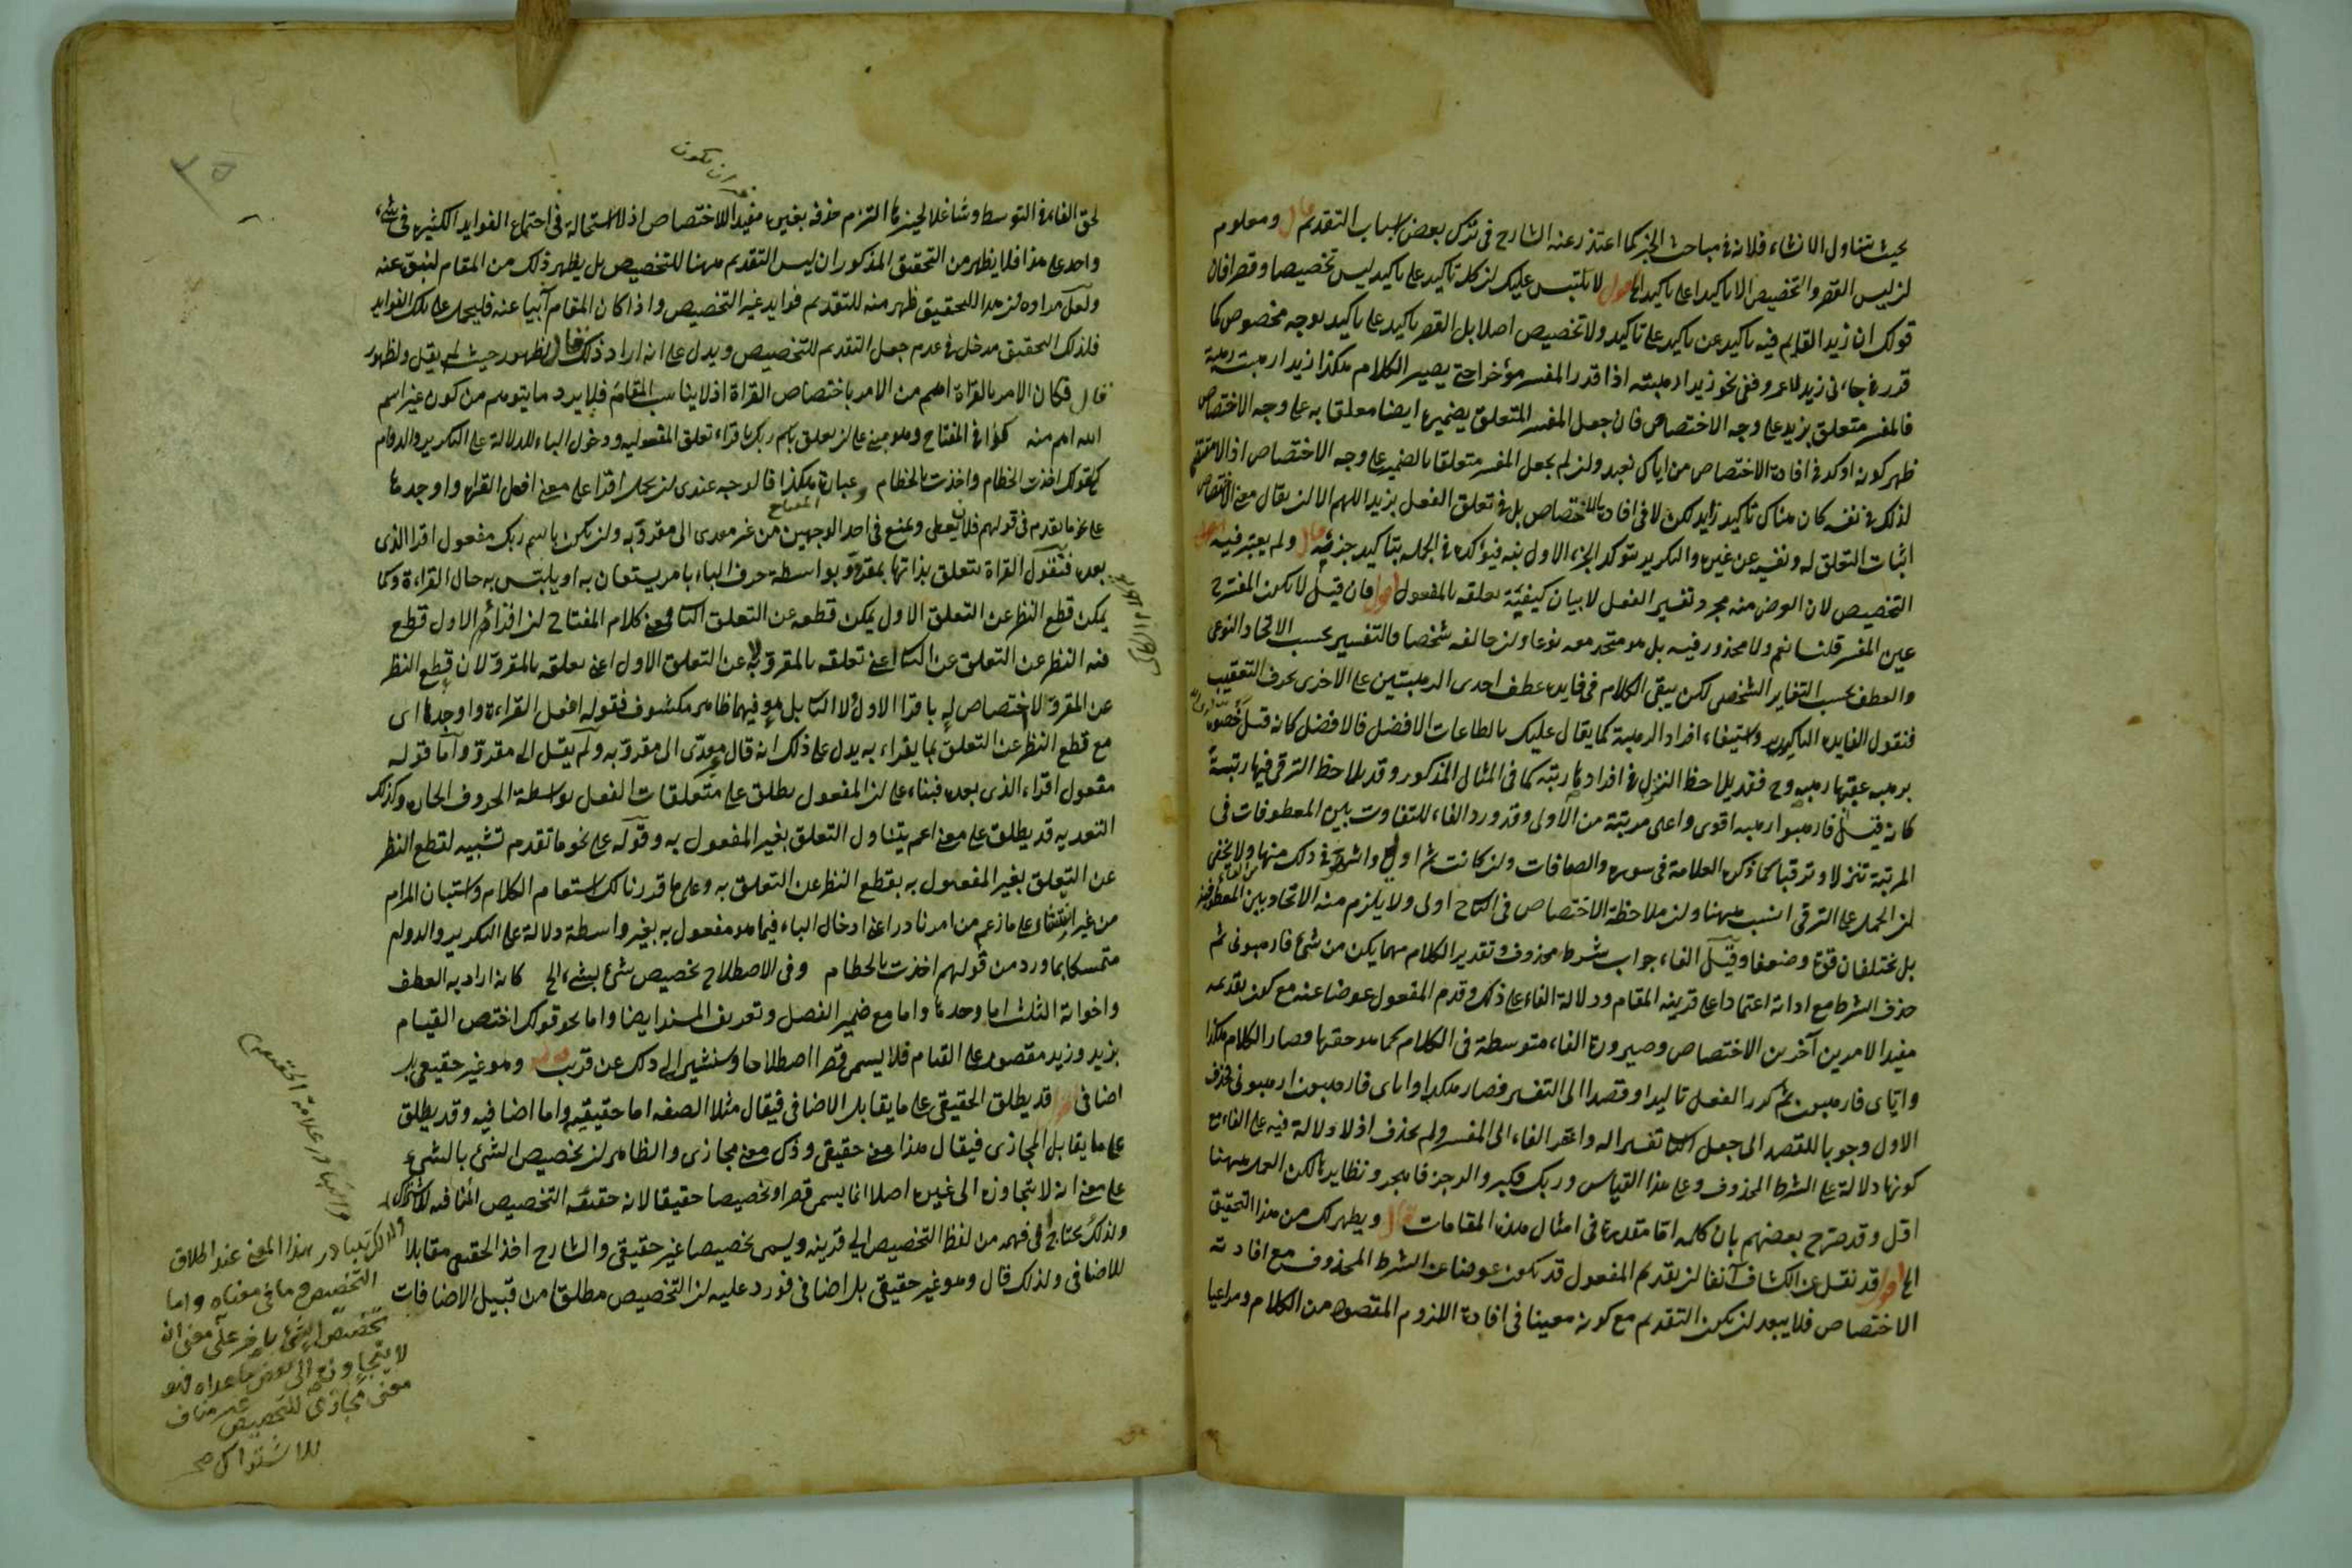 بحيث يتناول الانشاء فلانه في مباحث الخبر كما اعتذر عنه الشارح في ترك بعض اسباب التقديم قال ومعلوم
لن ليس القصر والتخصيص الا تاكيدا على تاكيد الخ اقول لا يلتبس عليك لن كل تاكيد على تاكيد ليس تخصيصا وقصرا فان
قولك ان زيدا لقايم فيه تاكيد عن تاكيد على تاكيد ولا تخصيص اصلا بل القصر تاكيد على تاكيد بوجه مخصوص كما
قدر في جاءني زيد لا عمرو ففي نحو زيدا رهبته اذا قدر المفسر مؤخرا حتى يصير الكلام هكذا زيدا رهبت رهبته
فالمفسر متعلق بزيد على وجه الاختصاص فان جعل المفسر المتعلق بضميره ايضا معلقا به على وجه الاختصاص
ظهر كونه اوكد في افادة الاختصاص من اياك نعبد ولن لم يجعل المفسر متعلقا بالضمير على وجه الاختصاص اذ لا مقتضى
لذلك في نفسه كان هناك تاكيد زايد لكن لا في افادة الاختصاص بل في تعلق الفعل بزيد اللهم الا لن يقال معنى الاختصاص
اثبات التعلق له ونفيه عن غيره والتكرير يتوكد الجزء الاول منه فيتؤكده في الجملة بتاكيد جزئه قال ولم يعتبر فيه
التخصيص لان الغرض منه مجرد تفسير الفعل لا بيان كيفية تعلقه بالمفعول اقول فان قيل لا يكون المفسر
عين المفسر قلنا نعم ولا محذور فيه بل هو متحد معه نوعا ولن خالفه شخصا فالتفسير بحسب الاتحاد النوعي
والعطف بحسب التغاير الشخصي لكن يبقى الكلام في فايدة عطف احدى الرهبتين على الاخرى بحرف التعقيب
فنقول الفايدة التاكيد واستيفاء افراد الرهبة كما يقال عليك بالطاعات الافضل فالافضل كانه قيل
برهبة عقبها رهبة وح فقد يلاحظ التنزل في افرادها رتبة كما في المثال المذكور وقد يلاحظ الترقي فيها رتبة
كانه قيل فارهبوا رهبة اقوى واعلى مرتبة من الاولى وقد ورد الفاء للتفاوت بين المعطوفات في
المرتبة تنزلا وترقيا كما ذكره العلامة في سورة والصافات ولن كانت ثم اولى واشهر في ذلك منها ولا يخفى
لن الحمل على الترقي انسب ههنا ولن ملاحظة الاختصاص في الثاني اولى ولا يلزم منه الاتحاد بين المعطوفين
بل يختلفان قوة وضعفا وقيل الفاء جواب شرط محذوف وتقدير الكلام مهما يكن من شئ فارهبوني ثم
حذف الشرط مع اداته اعتمادا على قرينة المقام ودلالة الفاء على ذلك وقدم المفعول عوضا عنه مع كون تقديمه
مفيدا لامرين آخرين الاختصاص وصيرورة الفاء متوسطة في الكلام كما هو حقها وصار الكلام هكذا
واياي فارهبون ثم كرر الفعل تاكيدا وقصدا الى التفسير فصار هكذا واياي فارهبون ارهبوني فحذف
الاول وجوبا للقصد الى جعل الثاني تفسيرا له واخر الفاء الى المفسر ولم يحذف اذ لا دلالة فيه على الفاء مع
كونها دلالة على الشرط المحذوف وعلى هذا القياس وربك فكبر والرجز فاهجر ونظايرها لكن العمل ههنا
اقل وقد صرح بعضهم بان كلمة اما مقدرة في امثال هذه المقامات قال ويظهر لك من هذا التحقيق
الخ اقول قد نقل عن الكشاف آنفا لن تقديم المفعول قد يكون عوضا عن الشرط المحذوف مع افادته
الاختصاص فلا يبعد لن يكون التقديم مع كونه معينا في افادة اللزوم المقصود من الكلام ومراعيا
لحق الفاء في التوسط وشاغلا لحيز ما التزم حذفه بغيره مفيدا للاختصاص اذ لا استحالة في اجتماع الفوايد الكثيرة في شئ
واحد على هذا فلا يظهر من التحقيق المذكور ان ليس التقديم ههنا للتخصيص بل يظهر ذلك من المقام لنبوه عنه
ولعل مراده لن هذا التحقيق ظهر منه للتقديم فوايد غير التخصيص واذا كان المقام آبيا عنه فليحمل على تلك الفوايد
فلذلك التحقيق مدخل في عدم جعل التقديم للتخصيص ويدل على انه اراد ذلك الظهور حيث لم يقل ولظهور
قال فكان الامر بالقراة اهم من الامر باختصاص القراة اذ لا يناسب المقام فلا يرد ما يتوهم من كون غير اسم
الله اهم منه كذا في المفتاح وهو مبني على لن تعلق باسم ربك باقراء تعلق المفعولية ودخول الباء للدلالة على التكرير والدوام
كقولك اخذت الخطام واخذت بالخطام وعبارة المفتاح هكذا فالوجه عندي لن يحمل اقرا على معنى افعل القراة واوجدها
على نحو ما تقدم في قولهم فلان يعطي ويمنع في احد الوجهين من غير معدى الى مقروء به ولن يكون باسم ربك مفعول اقرا الذي
بعده فنقول القراة تتعلق بذاتها بمقروء وبواسطة حرف الباء بامر يستعان به او يلتبس به حال القراءة وكما
يمكن قطع النظر عن التعلق الاول يمكن قطعه عن التعلق الثاني فمعنى كلام المفتاح لن اقرا في الاول قطع
فيه النظر عن التعلق عن الثاني اعني تعلقه بالمقروء به لا عن التعلق الاول اعني تعلقه بالمقروء لان قطع النظر
عن المقروء لا اختصاص له باقرا الاول ولا الثاني بل هو فيهما ظاهر مكشوف فقوله افعل القراءة واوجدها اى
مع قطع النظر عن التعلق بما يقراء به يدل على ذلك انه قال معدى الى مقروء به ولم يقل الى مقروء واما قوله
مفعول اقراء الذي بعده فبناء على لن المفعول يطلق على متعلقات الفعل بواسطة الحروف الجارة وكذلك
التعدية قد يطلق على معنى اعم يتناول التعلق بغير المفعول به وقوله على نحو ما تقدم تشبيه لقطع النظر
عن التعلق بغير المفعول به بقطع النظر عن التعلق به وعلى ما قدرنا لك استقام الكلام واستبان المرام
من غير ابتناء على ما زعم من امر نادر اعني ادخال الباء فيما هو مفعول به بغير واسطة دلالة على التكرير والدوام
متمسكا بما ورد من قولهم اخذت بالخطام وفي الاصطلاح تخصيص شئ بشئ الخ كانه اراد به العطف
واخواته الثلث اما وحدها واما مع ضمير الفصل وتعريف المسند ايضا واما نحو قولك اختص القيام
بزيد وزيد مقصور على القيام فلا يسمى قصرا اصطلاحا وسنشير الى ذلك عن قريب قوله وهو غير حقيقي بل
اضافي اقول قد يطلق الحقيقي على ما يقابل الاضافي فيقال مثلا الصفة اما حقيقية واما اضافية وقد يطلق
على ما يقابل المجازي فيقال هذا معنى حقيقي وذلك معنى مجازي والظاهر لن تخصيص الشئ بالشئ
على معنى انه لا يتجاوزه الى غيره اصلا انما يسمى قصرا وتخصيصا حقيقيا لانه حقيقة التخصيص المنافية للاشتراك
ولذلك يحتاج في فهمه من لفظ التخصيص الى قرينة ويسمى تخصيصا غير حقيقي والشارح اخذ الحقيقي مقابلا
للاضافي ولذلك قال وهو غير حقيقي بل اضافي فورد عليه لن التخصيص مطلقا من قبيل الاضافات
ان يكون
ولذلك يتبادر هذا المعنى عند اطلاق
التخصيص وما في معناه واما
تخصيص الشئ باخر على معنى انه
لا يتجاوزه الى بعض ما عداه فهو
معنى مجازي للتخصيص غير مناف
للاشتراك صح
والتبادر علامة الحقيقة
٣٥